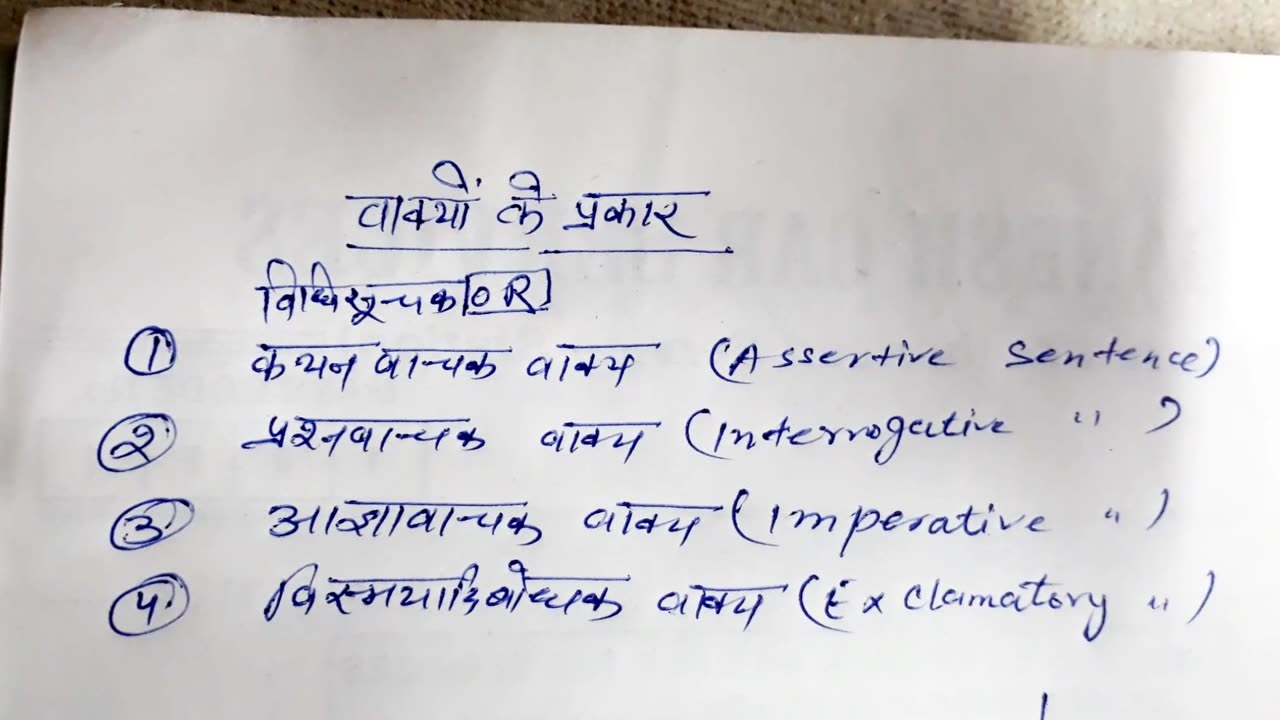 वाक्यों के प्रकार
विधिसूचक [OR]
① कथन वाचक वाक्य (Assertive Sentence)
② प्रश्नवाचक वाक्य (Interrogative " )
③ आज्ञावाचक वाक्य (Imperative " )
④ विस्मयादिबोधक वाक्य (Exclamatory " )